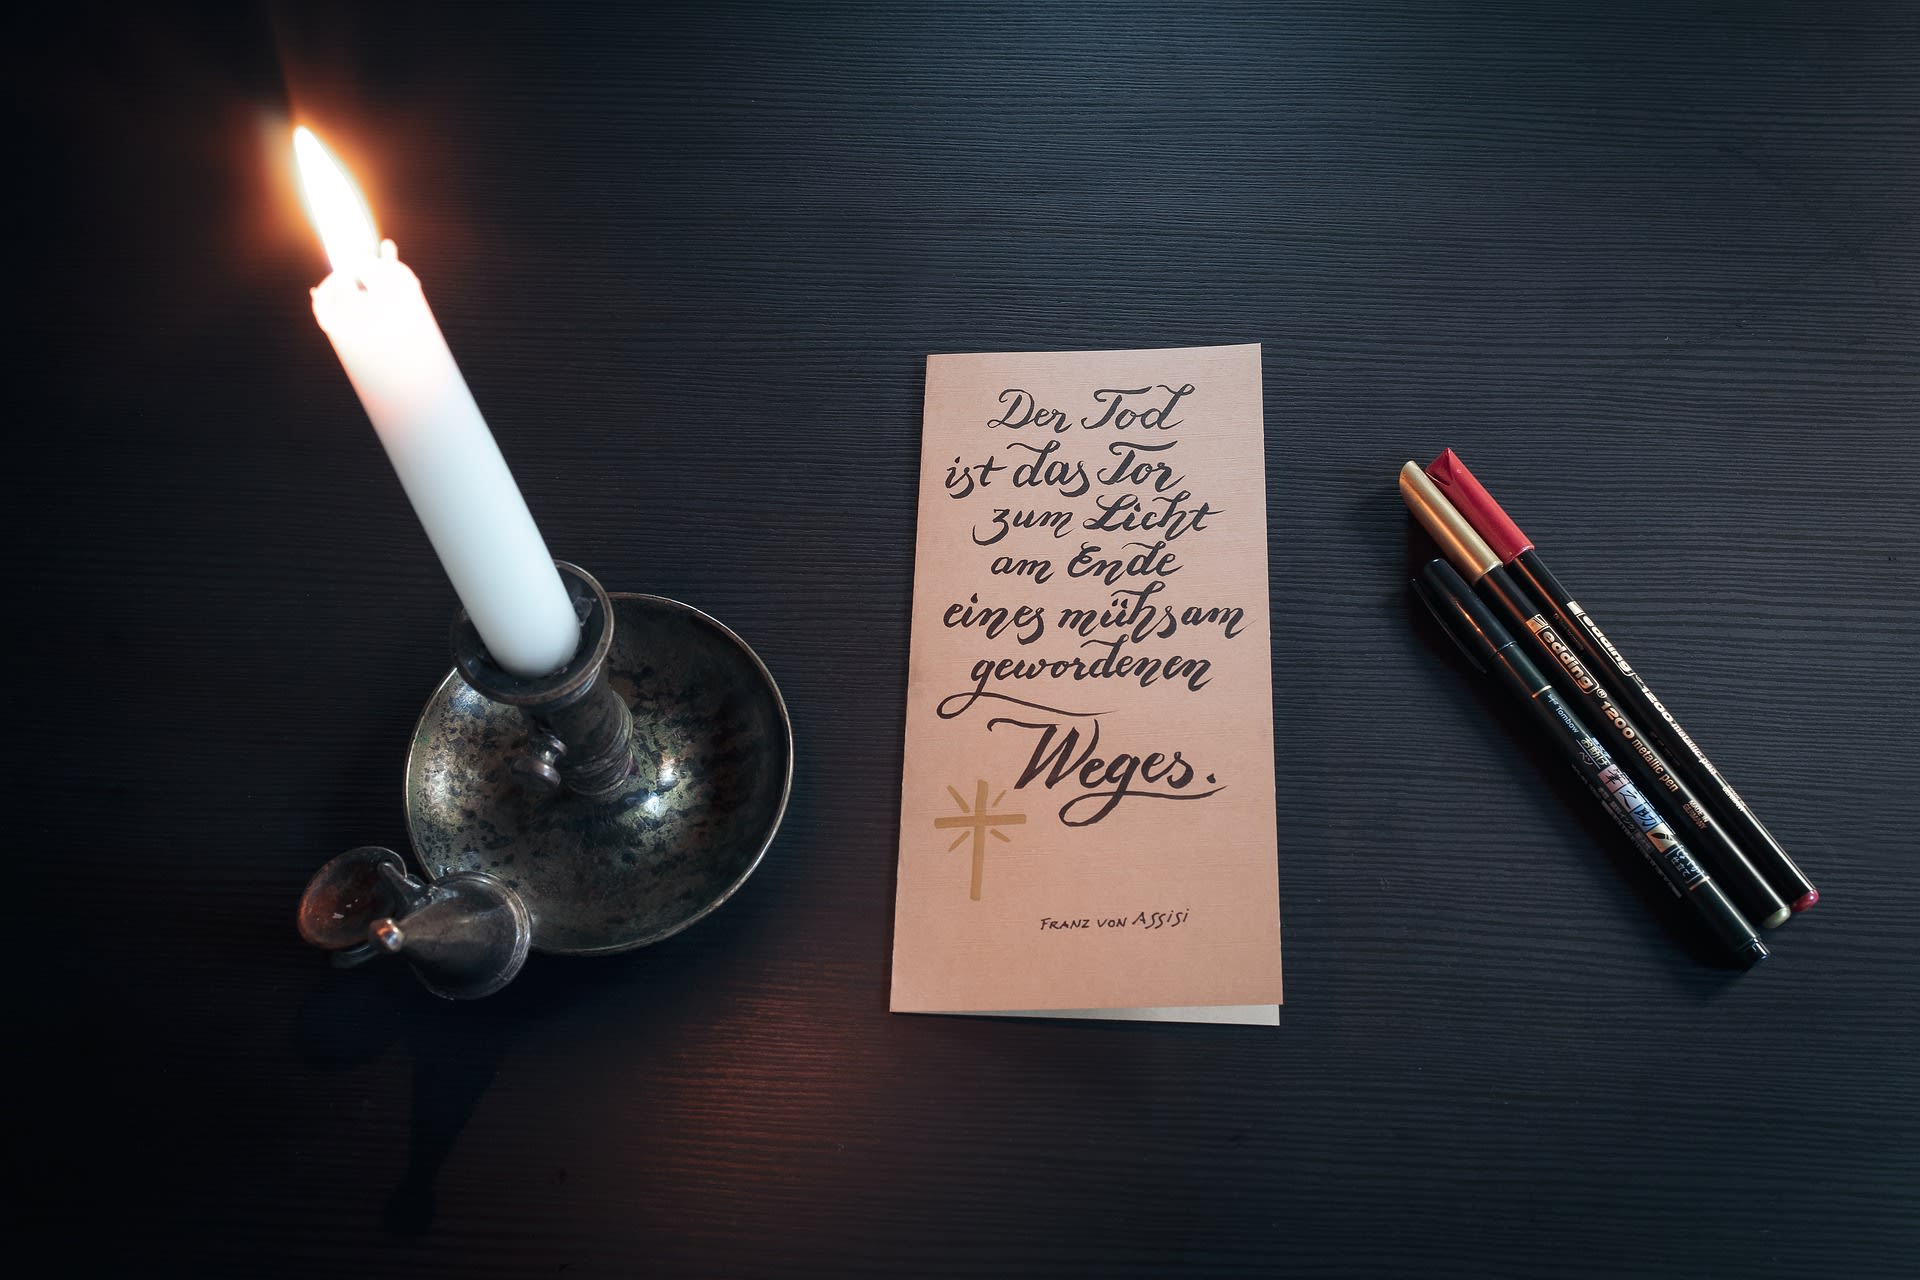 Der Tod
ist das Tor
zum Licht
am Ende
eines mühsam
gewordenen
Weges.
FRANZ VON ASSISI
edding 1200 metallic pen
edding® 1200 metallic pen MADE IN GERMANY
Tombow